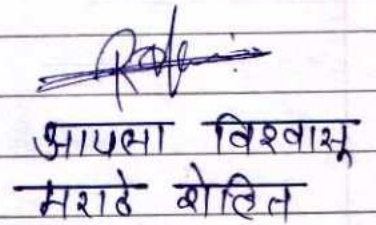 आपला विश्वासू
मराठे रोहित